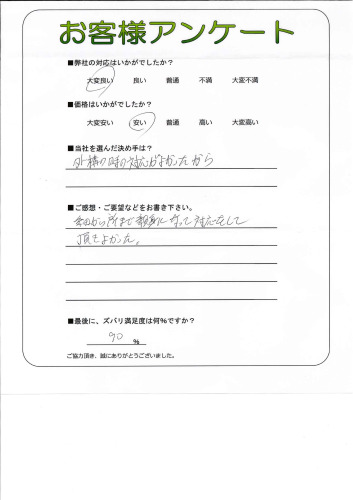 お客様アンケート
■弊社の対応はいかがでしたか?
大変良い 良い 普通 不満 大変不満
■価格はいかがでしたか?
大変安い 安い 普通 高い 大変高い
■当社を選んだ決め手は?
外構の時の対応がよかったから
■ご感想・ご要望などをお書き下さい。
まで親身になって対応をして
頂きよかった。
■最後に、ズバリ満足度は何%ですか?
90 %
ご協力頂き、誠にありがとうございました。